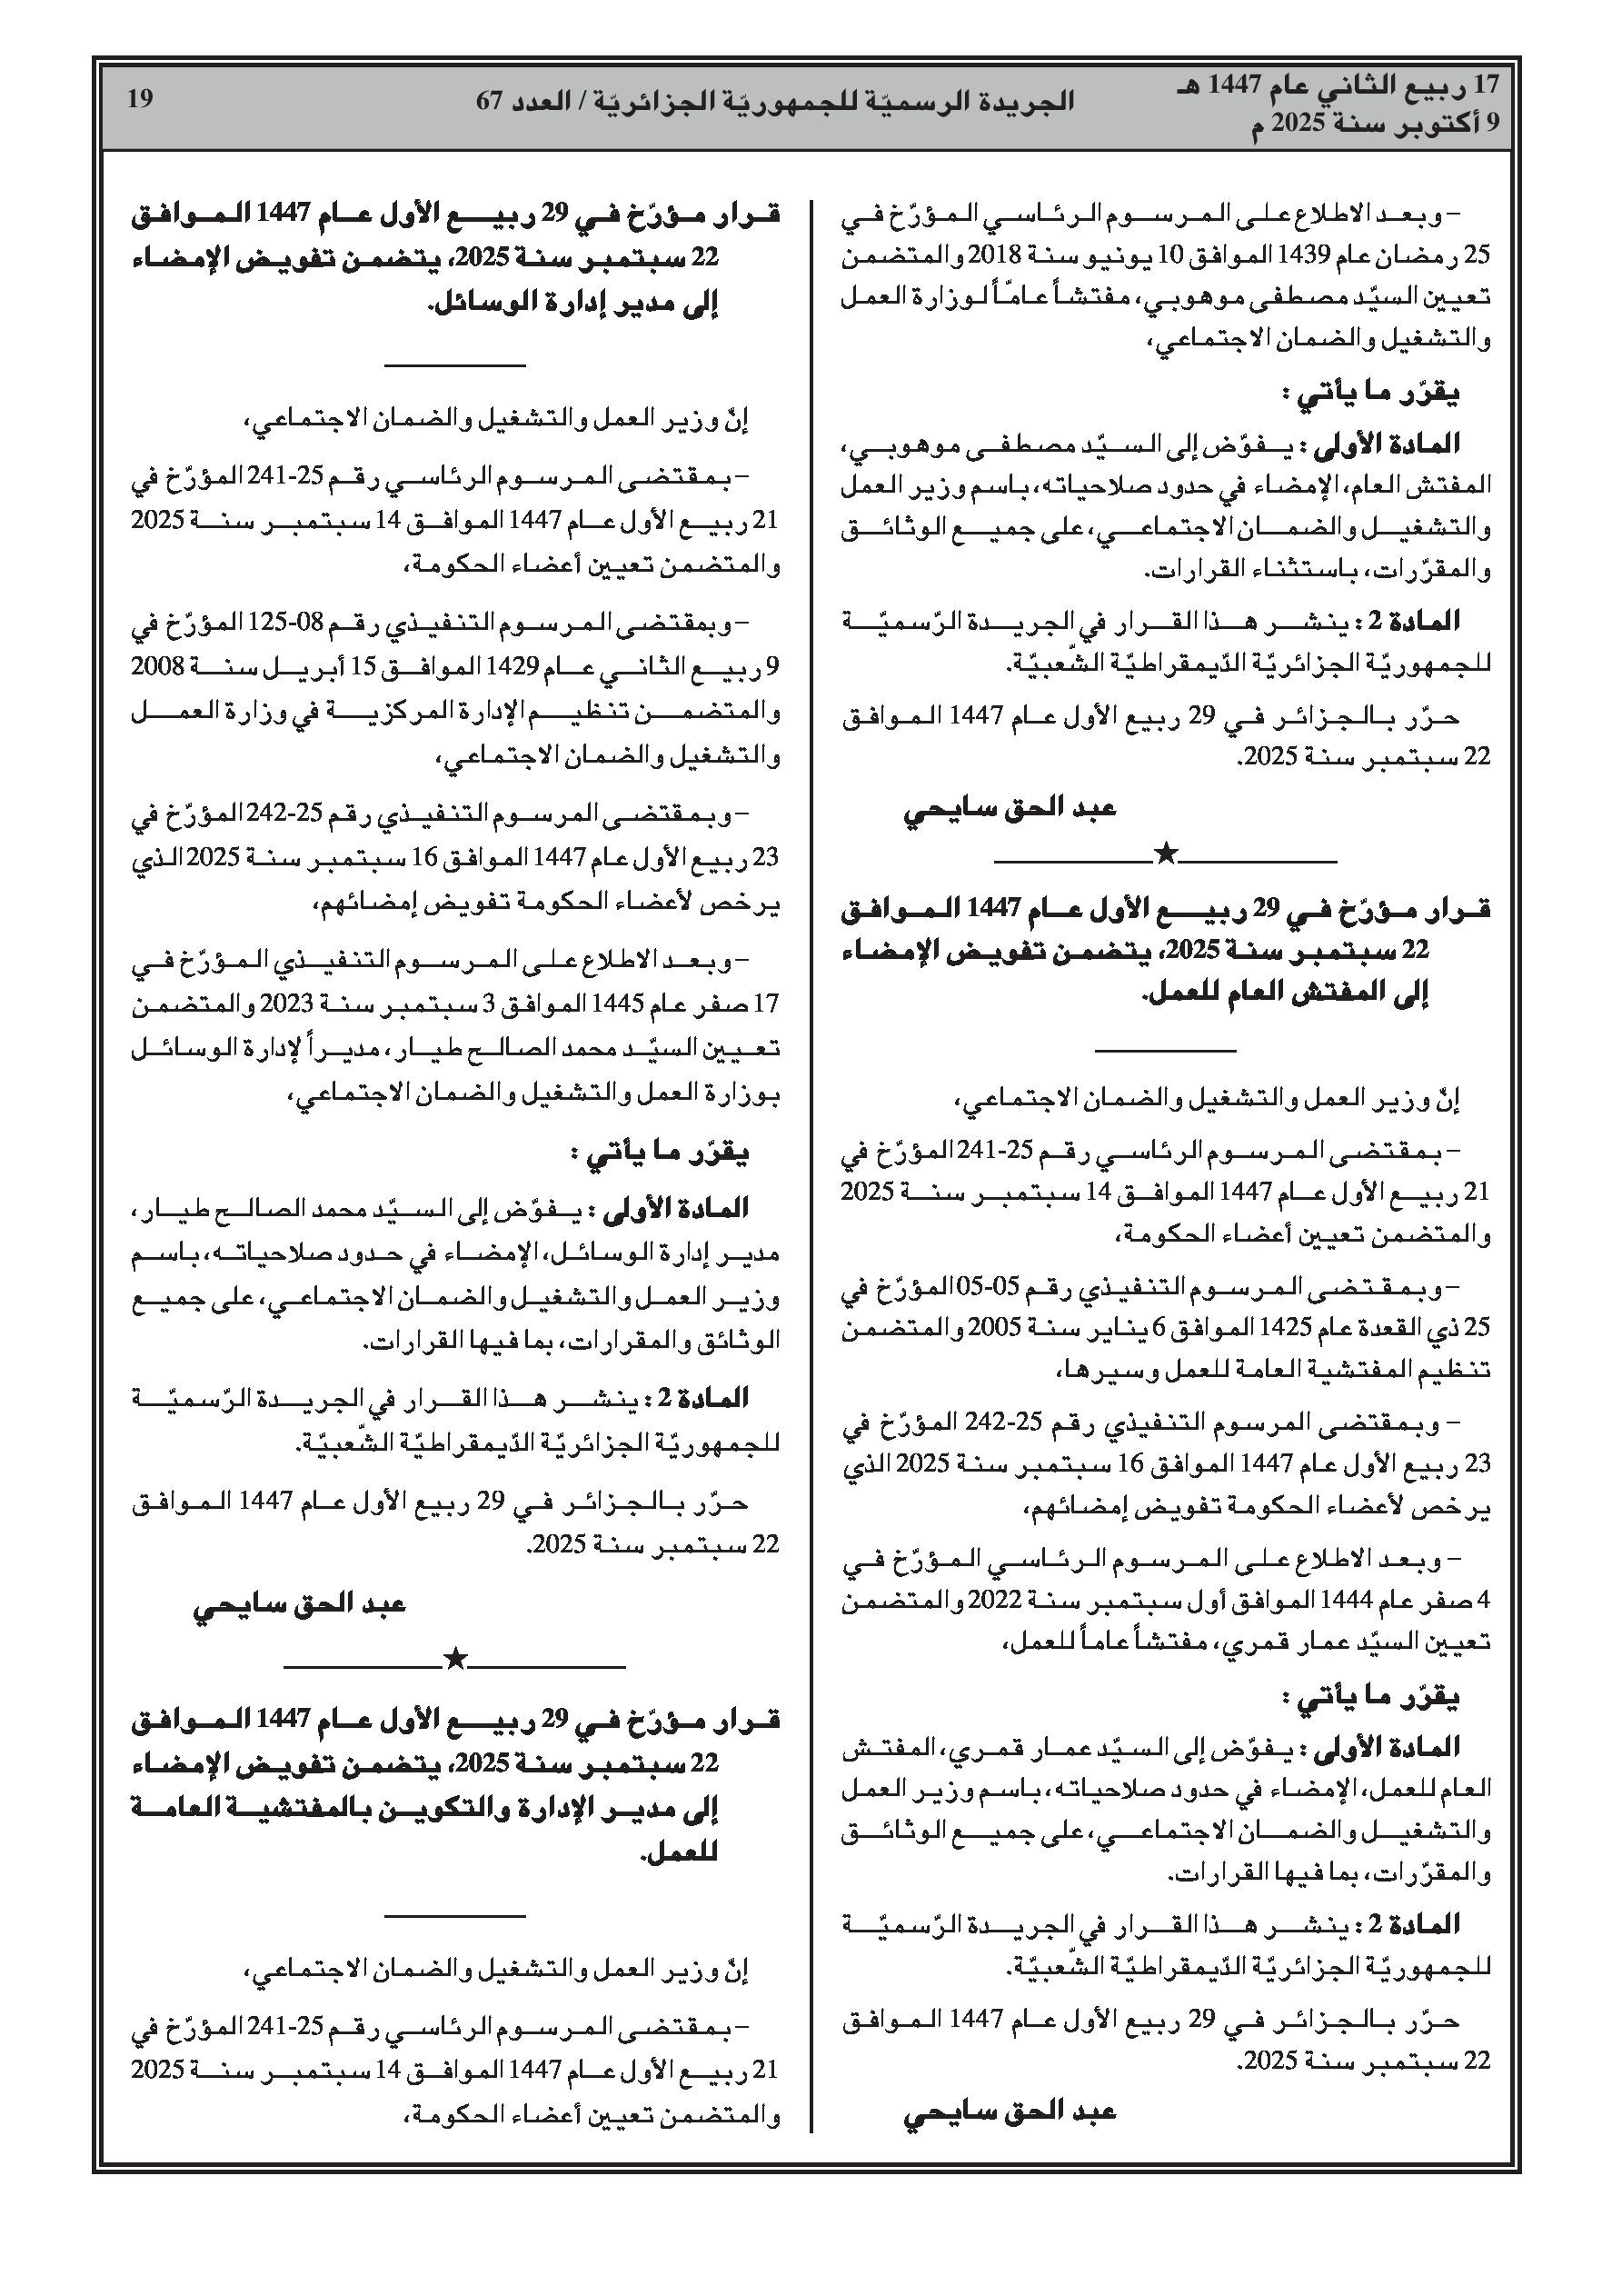 17 ربيع الثاني عام 1447 هـ
9 أكتوبر سنة 2025 م
الجريدة الرسميّة للجمهوريّة الجزائريّة / العدد 67
19
– وبعد الاطلاع على المرسوم الرئاسي المؤرّخ في
25 رمضان عام 1439 الموافق 10 يونيو سنة 2018 والمتضمن
تعيين السيّد مصطفى موهوبي، مفتشأ عامّأ لوزارة العمل
والتشغيل والضمان الاجتماعي،
يقرّر ما يأتي :
المادة الأولى : يفوّض إلى السيّد مصطفى موهوبي،
المفتش العام، الإمضاء في حدود صلاحياته، باسم وزير العمل
والتشغيل والضمان الاجتماعي، على جميع الوثائق
والمقرّرات، باستثناء القرارات.
المادة 2 : ينشر هذا القرار في الجريدة الرّسميّة
للجمهوريّة الجزائريّة الدّيمقراطيّة الشّعبيّة.
حرّر بالجزائر في 29 ربيع الأول عام 1447 الموافق
22 سبتمبر سنة 2025.
عبد الحق سايحي
قرار مؤرّخ في 29 ربيع الأول عام 1447 الموافق
22 سبتمبر سنة 2025، يتضمن تفويض الإمضاء
إلى المفتش العام للعمل.
إنّ وزير العمل والتشغيل والضمان الاجتماعي،
– بمقتضى المرسوم الرئاسي رقم 25-241 المؤرّخ في
21 ربيع الأول عام 1447 الموافق 14 سبتمبر سنة 2025
والمتضمن تعيين أعضاء الحكومة،
– وبمقتضى المرسوم التنفيذي رقم 05-05 المؤرّخ في
25 ذي القعدة عام 1425 الموافق 6 يناير سنة 2005 والمتضمن
تنظيم المفتشية العامة للعمل وسيرها،
– وبمقتضى المرسوم التنفيذي رقم 25-242 المؤرّخ في
23 ربيع الأول عام 1447 الموافق 16 سبتمبر سنة 2025 الذي
يرخص لأعضاء الحكومة تفويض إمضائهم،
– وبعد الاطلاع على المرسوم الرئاسي المؤرّخ في
4 صفر عام 1444 الموافق أول سبتمبر سنة 2022 والمتضمن
تعيين السيّد عمار قمري، مفتشأ عامأ للعمل،
يقرّر ما يأتي :
المادة الأولى : يفوّض إلى السيّد عمار قمري، المفتش
العام للعمل، الإمضاء في حدود صلاحياته، باسم وزير العمل
والتشغيل والضمان الاجتماعي، على جميع الوثائق
والمقرّرات، بما فيها القرارات.
المادة 2 : ينشر هذا القرار في الجريدة الرّسميّة
للجمهوريّة الجزائريّة الدّيمقراطيّة الشّعبيّة.
حرّر بالجزائر في 29 ربيع الأول عام 1447 الموافق
22 سبتمبر سنة 2025.
عبد الحق سايحي
قرار مؤرّخ في 29 ربيع الأول عام 1447 الموافق
22 سبتمبر سنة 2025، يتضمن تفويض الإمضاء
إلى مدير إدارة الوسائل.
إنّ وزير العمل والتشغيل والضمان الاجتماعي،
– بمقتضى المرسوم الرئاسي رقم 25-241 المؤرّخ في
21 ربيع الأول عام 1447 الموافق 14 سبتمبر سنة 2025
والمتضمن تعيين أعضاء الحكومة،
– وبمقتضى المرسوم التنفيذي رقم 08-125 المؤرّخ في
9 ربيع الثاني عام 1429 الموافق 15 أبريل سنة 2008
والمتضمن تنظيم الإدارة المركزية في وزارة العمل
والتشغيل والضمان الاجتماعي،
– وبمقتضى المرسوم التنفيذي رقم 25-242 المؤرّخ في
23 ربيع الأول عام 1447 الموافق 16 سبتمبر سنة 2025 الذي
يرخص لأعضاء الحكومة تفويض إمضائهم،
– وبعد الاطلاع على المرسوم التنفيذي المؤرّخ في
17 صفر عام 1445 الموافق 3 سبتمبر سنة 2023 والمتضمن
تعيين السيّد محمد الصالح طيار، مديرأ لإدارة الوسائل
بوزارة العمل والتشغيل والضمان الاجتماعي،
يقرّر ما يأتي :
المادة الأولى : يفوّض إلى السيّد محمد الصالح طيار،
مدير إدارة الوسائل، الإمضاء في حدود صلاحياته، باسم
وزير العمل والتشغيل والضمان الاجتماعي، على جميع
الوثائق والمقرارات، بما فيها القرارات.
المادة 2 : ينشر هذا القرار في الجريدة الرّسميّة
للجمهوريّة الجزائريّة الدّيمقراطيّة الشّعبيّة.
حرّر بالجزائر في 29 ربيع الأول عام 1447 الموافق
22 سبتمبر سنة 2025.
عبد الحق سايحي
قرار مؤرّخ في 29 ربيع الأول عام 1447 الموافق
22 سبتمبر سنة 2025، يتضمن تفويض الإمضاء
إلى مدير الإدارة والتكوين بالمفتشية العامة
للعمل.
إنّ وزير العمل والتشغيل والضمان الاجتماعي،
– بمقتضى المرسوم الرئاسي رقم 25-241 المؤرّخ في
21 ربيع الأول عام 1447 الموافق 14 سبتمبر سنة 2025
والمتضمن تعيين أعضاء الحكومة،